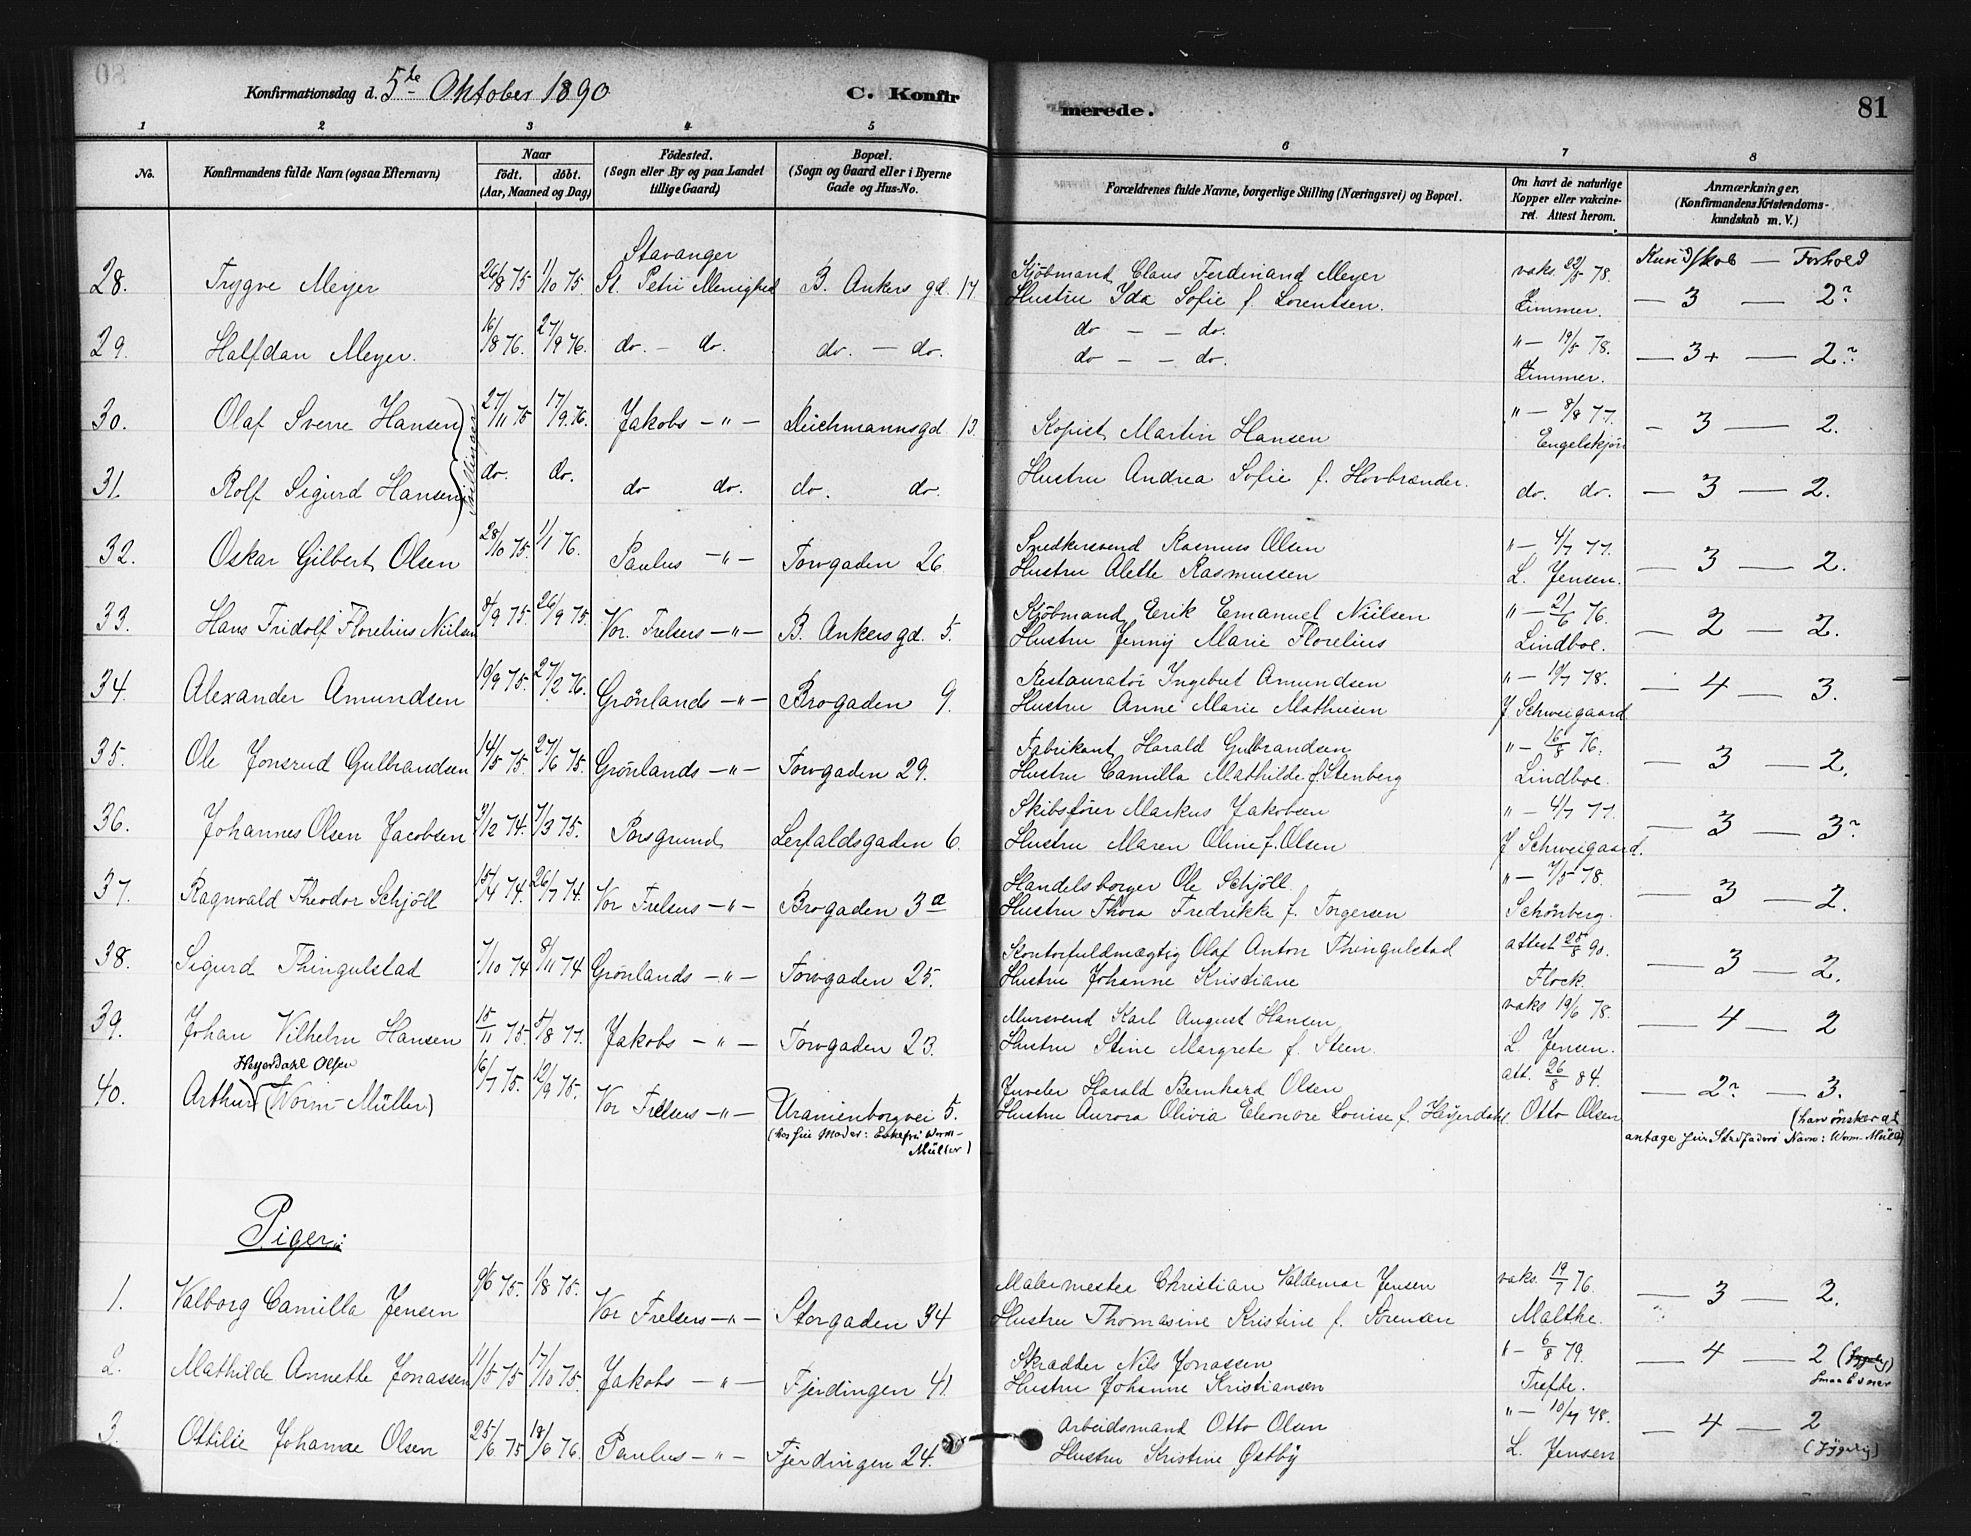 Konfirmationsdag d. 5te Oktober 1890
C. Konfir
merede.
81
1 2 3 4 5 6 7 8
No.
Konfirmandens fulde Navn (ogsaa Efternavn)
Naar
født. døbt.
(Aar, Maaned og Dag)
Fødested.
(Sogn eller By og paa Landet
tillige Gaard)
Bopæl.
(Sogn og Gaard eller i Byerne
Gade og Hus-No.
Forældrenes fulde Navne, borgerlige Stilling (Næringsvei) og Bopæl.
Om havt de naturlige
Kopper eller vakcine-
ret. Attest herom.
Anmærkninger.
(Konfirmandens Kristendoms-
kundskab m. V.)
Kundskab — Forhold
28. Trygve Meyer 26/8 75 1/10 75. Stavanger St. Petri Menighed B. Ankers gd. 17
Kjøbmand Claus Ferdinand Meyer vaks 22/5 78. — 3 — 2?
Hustru Ida Sofie f. Lorentsen. Zimmer.
29. Halfdan Meyer. 16/8 76. 27/9 76. do. — do. do. — do.
do — — do. " — 19/5 78. — 3+ — 2?
do — — do. Zimmer.
30. Olaf Sverre Hansen 27/11 75 17/9 76. Jakobs — " — Deichmannsgd 13.
Tvillinger
Kopist Martin Hansen " — 8/8 77. — 3 — 2.
Engelskjøn
31. Rolf Sigurd Hansen do. do. do do. do. do.
Hustru Andrea Sofie f. Hovbrænder. do. do. — 3 — 2.
32. Oskar Gilbert Olsen 28/10 75. 1/1 76. Paulus — " — Torvgaden 26.
Snedkersvend Rasmus Olsen " — 4/7 77. — 3 — 2.
Hustru Alette Rasmussen L. Jensen.
33. Hans Fridolf Florelius Nielsen 8/9 75. 26/9 75. Vor Frelsers — " — B. Ankers gd. 5.
Kjøbmand Erik Emanuel Nielsen " — 21/6 76. — 2 — 2.
Hustru Jenny Marie Florelius Lindboe.
34. Alexander Amundsen 19/9 75. 27/2 76. Grønlands — " — Brogaden 9.
Restauratør Ingebret Amundsen " — 19/7 78. — 4 — 3.
Hustru Anne Marie Mathiesen J Schweigaard
35. Ole Jonsrud Gulbrandsen 14/5 75. 27/6 75. Grønlands — " — Torvgaden 29.
Fabrikant Harald Gulbrandsen " — 16/8 76. — 3 — 2.
Hustru Camilla Mathilde f. Stenberg Lindboe.
36. Johannes Olsen Jacobsen 3/12 74. 7/3 75. Porsgrund Lerfaldsgaden 6.
Skibsfører Markus Jakobsen " — 4/7 77. — 3 — 3?
Hustru Maren Oline f. Olsen J Schweigaard.
37. Ragnvald Theodor Schjöll 15/4 74. 26/7 74. Vor Frelsers — " — Brogaden 3a
Handelsborger Ole Schjöll. " — 7/5 78. — 3 — 2.
Hustru Thora Fredrikke f. Torgersen Schönberg.
38. Sigurd Thingulstad 7/10 74 8/11 74 Grønlands — " — Torvgaden 25.
Kontorfuldmægtig Olaf Anton Thingulstad attest 25/8 90. — 3 — 2.
Hustru Johanne Kristiane Flock.
39. Johan Vilhelm Hansen 15/11 75. 5/8 77. Jakobs — " — Torvgaden 23.
Mursvend Karl August Hansen vaks 19/6 78. — 4 — 2
Hustru Stine Margrete f. Steen. L. Jensen.
Heyerdahl Olsen
40. Arthur (Worm-Müller) 16/7 75. 12/9 75. Vor Frelsers — " — Uranienborgvei 5.
(hos sin Moder: Enkefru Worm-
Müller)
Juveler Harald Bernhard Olsen att. 26/8 84. — 2? — 3.
Hustru Aurora Olivia Eleonore Louise f. Heyerdahl Otto Olsen (han ønsker at
antage sin Stedfaders Navn: Worm-Müller)
Piger:
1. Valborg Camilla Jensen 9/6 75. 1/8 75. Vor Frelsers — " — Storgaden 34
Malermester Christian Valdemar Jensen vaks. 19/7 76. — 3 — 2.
Hustru Thomasine Kristine f. Sørensen Malthe.
2. Mathilde Annette Jonassen 11/5 75 17/10 75. Jakobs — " — Fjerdingen 41.
Skrædder Nils Jonassen " — 6/8 79. — 4 — 2
Hustru Johanne Kristiansen Trefte.
3. Ottilie Johanne Olsen 25/6 75 18/6 76. Paulus — " — Fjerdingen 24.
Arbeidsmand Otto Olsen " — 10/7 78. — 4 — 2
Hustru Kristine Østby L. Jensen